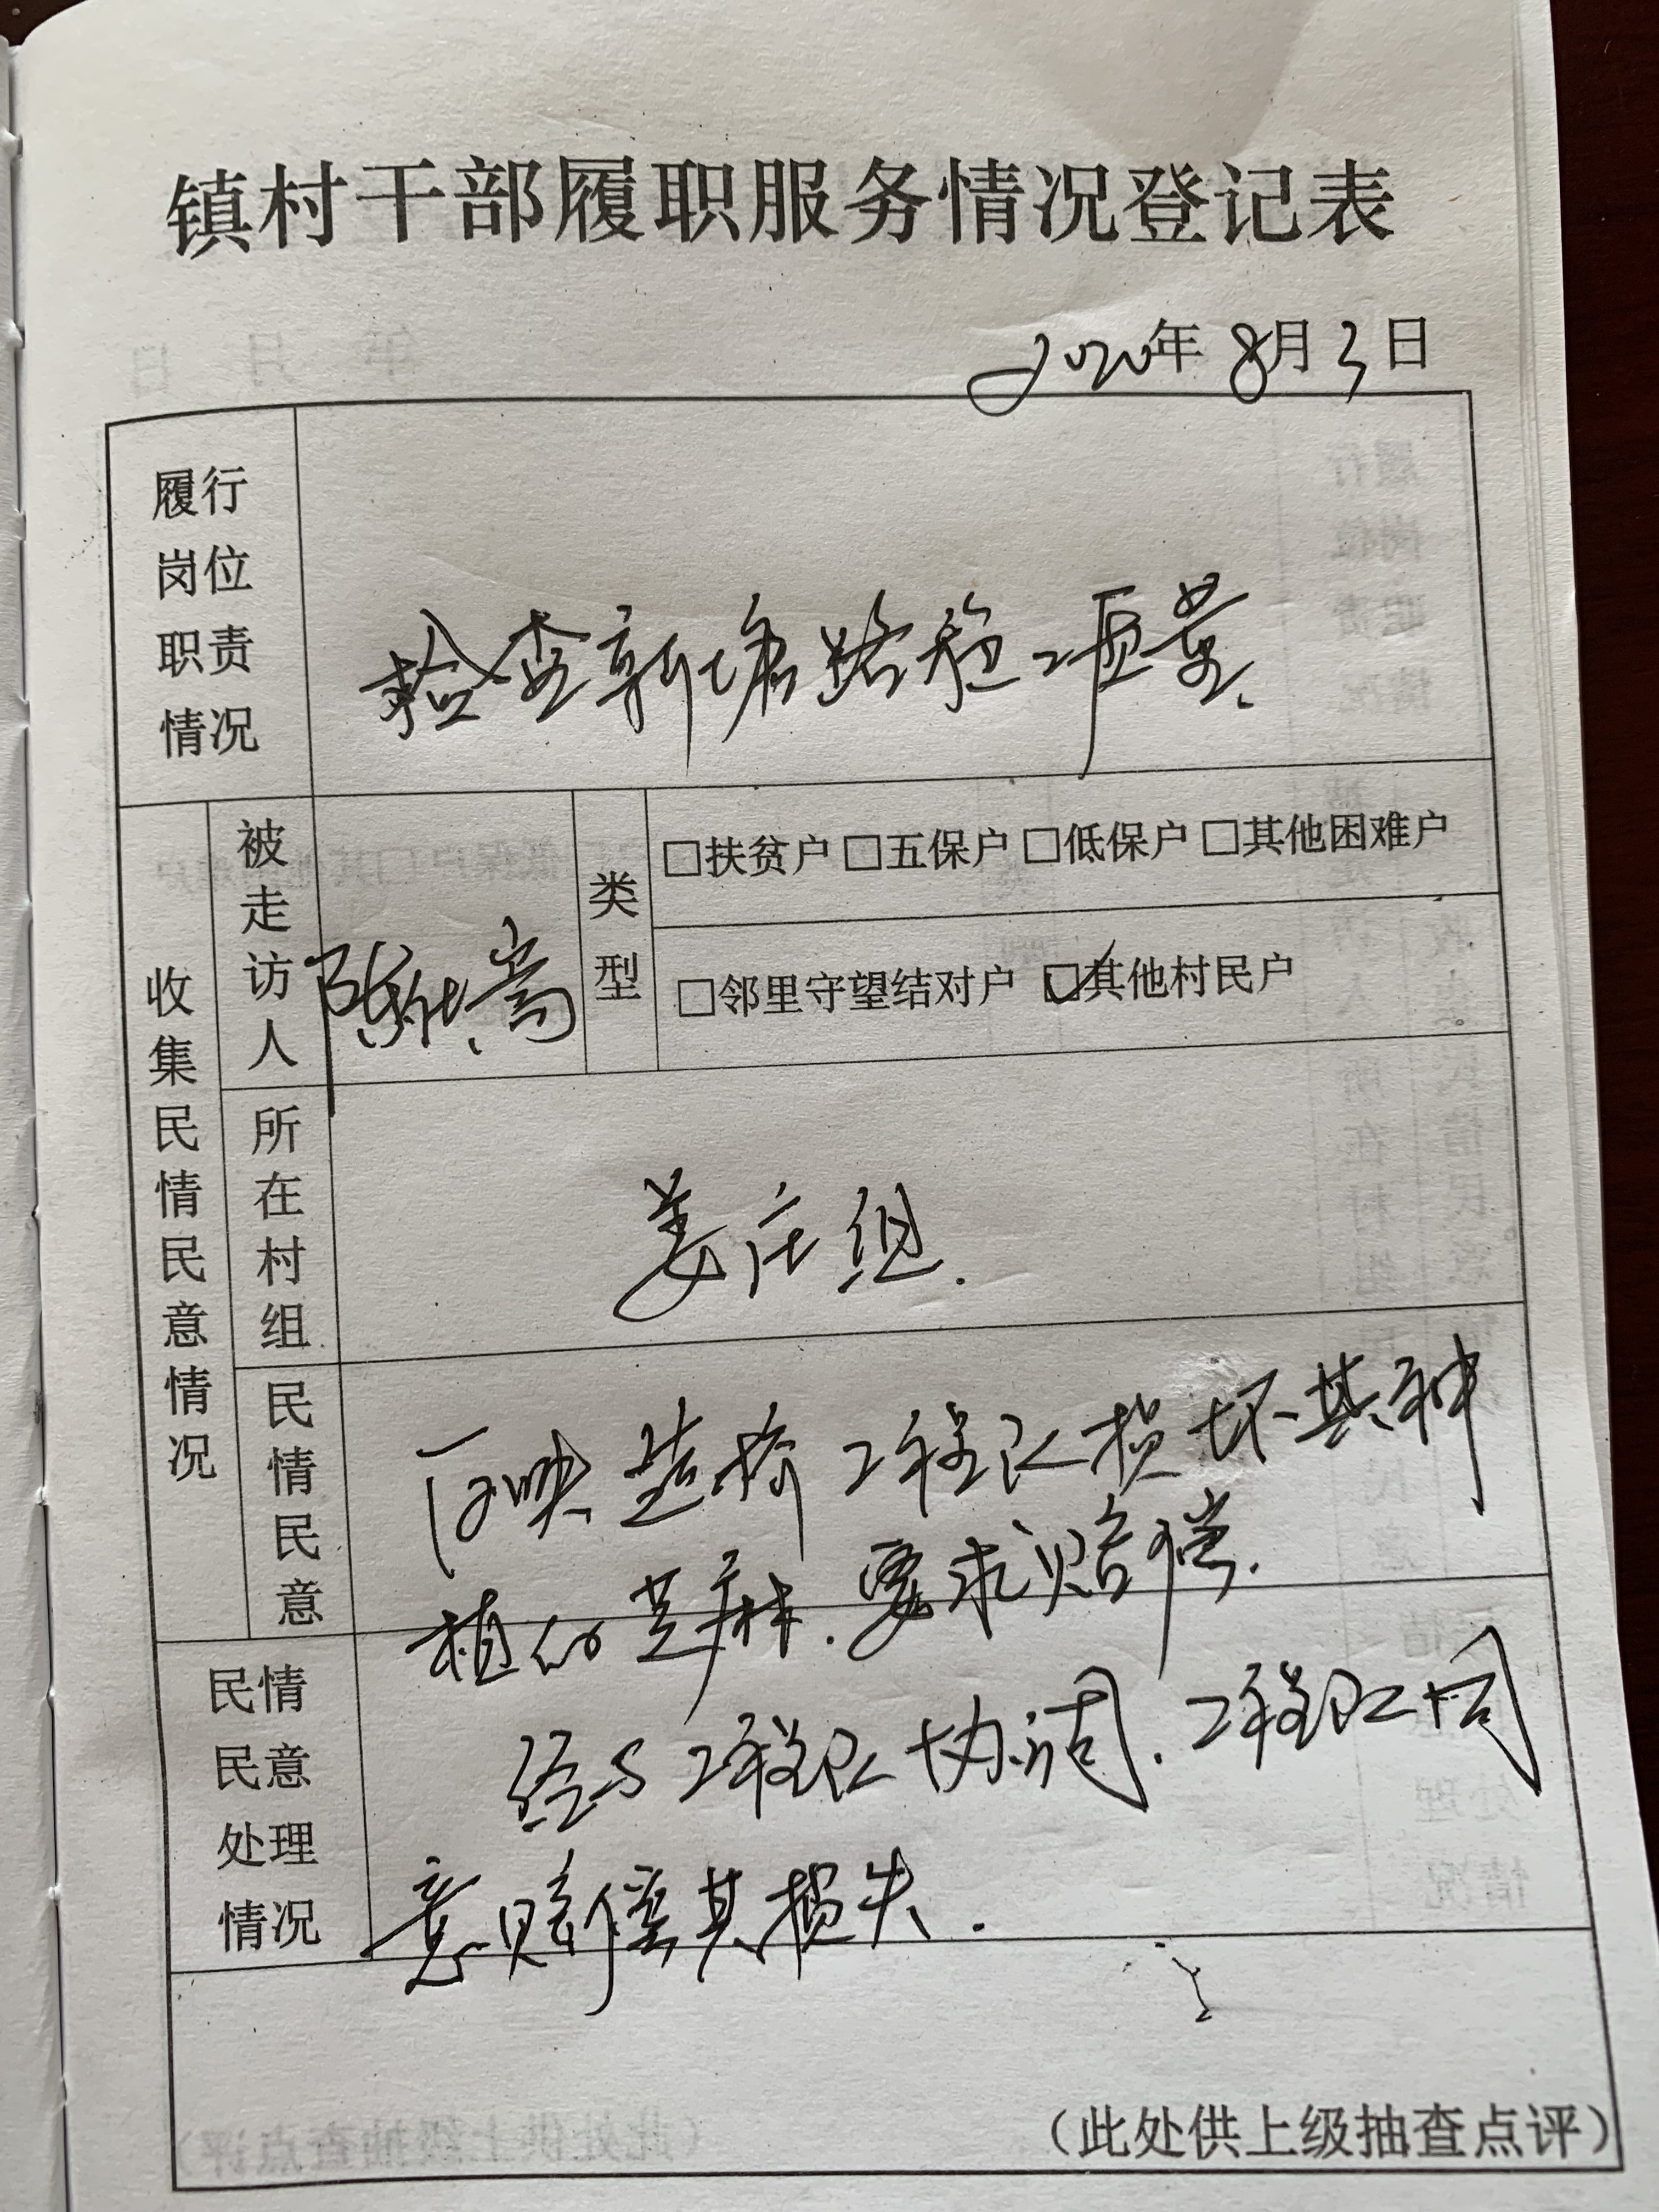 镇村干部履职服务情况登记表
2020年8月3日
履行
岗位
职责
情况
检查郭塘路施工质量.
收集民情民意情况
被走访人
陈
类型
□扶贫户 □五保户 □低保户 □其他困难户
□邻里守望结对户 ☑其他村民户
所在村组
姜庄组.
民情民意
反映 工程队损坏其种
植的芝麻.要求赔偿.
民情
民意
处理
情况
经与工程队协调.工程队同
意赔偿其损失.
（此处供上级抽查点评）